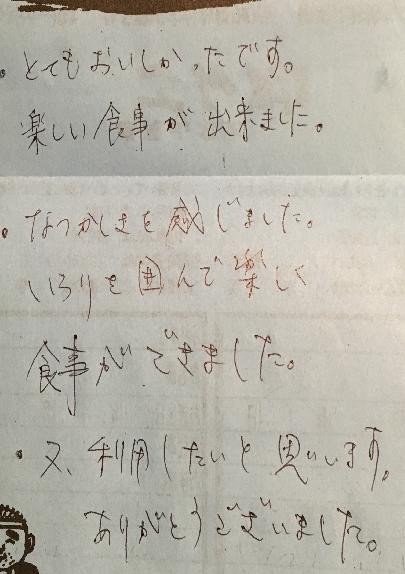 ・とてもおいしかったです。
楽しい食事が出来ました。
・なつかしさを感じました。
いろりを囲んで楽しく
食事ができました。
・又、利用したいと思います。
ありがとうございました。